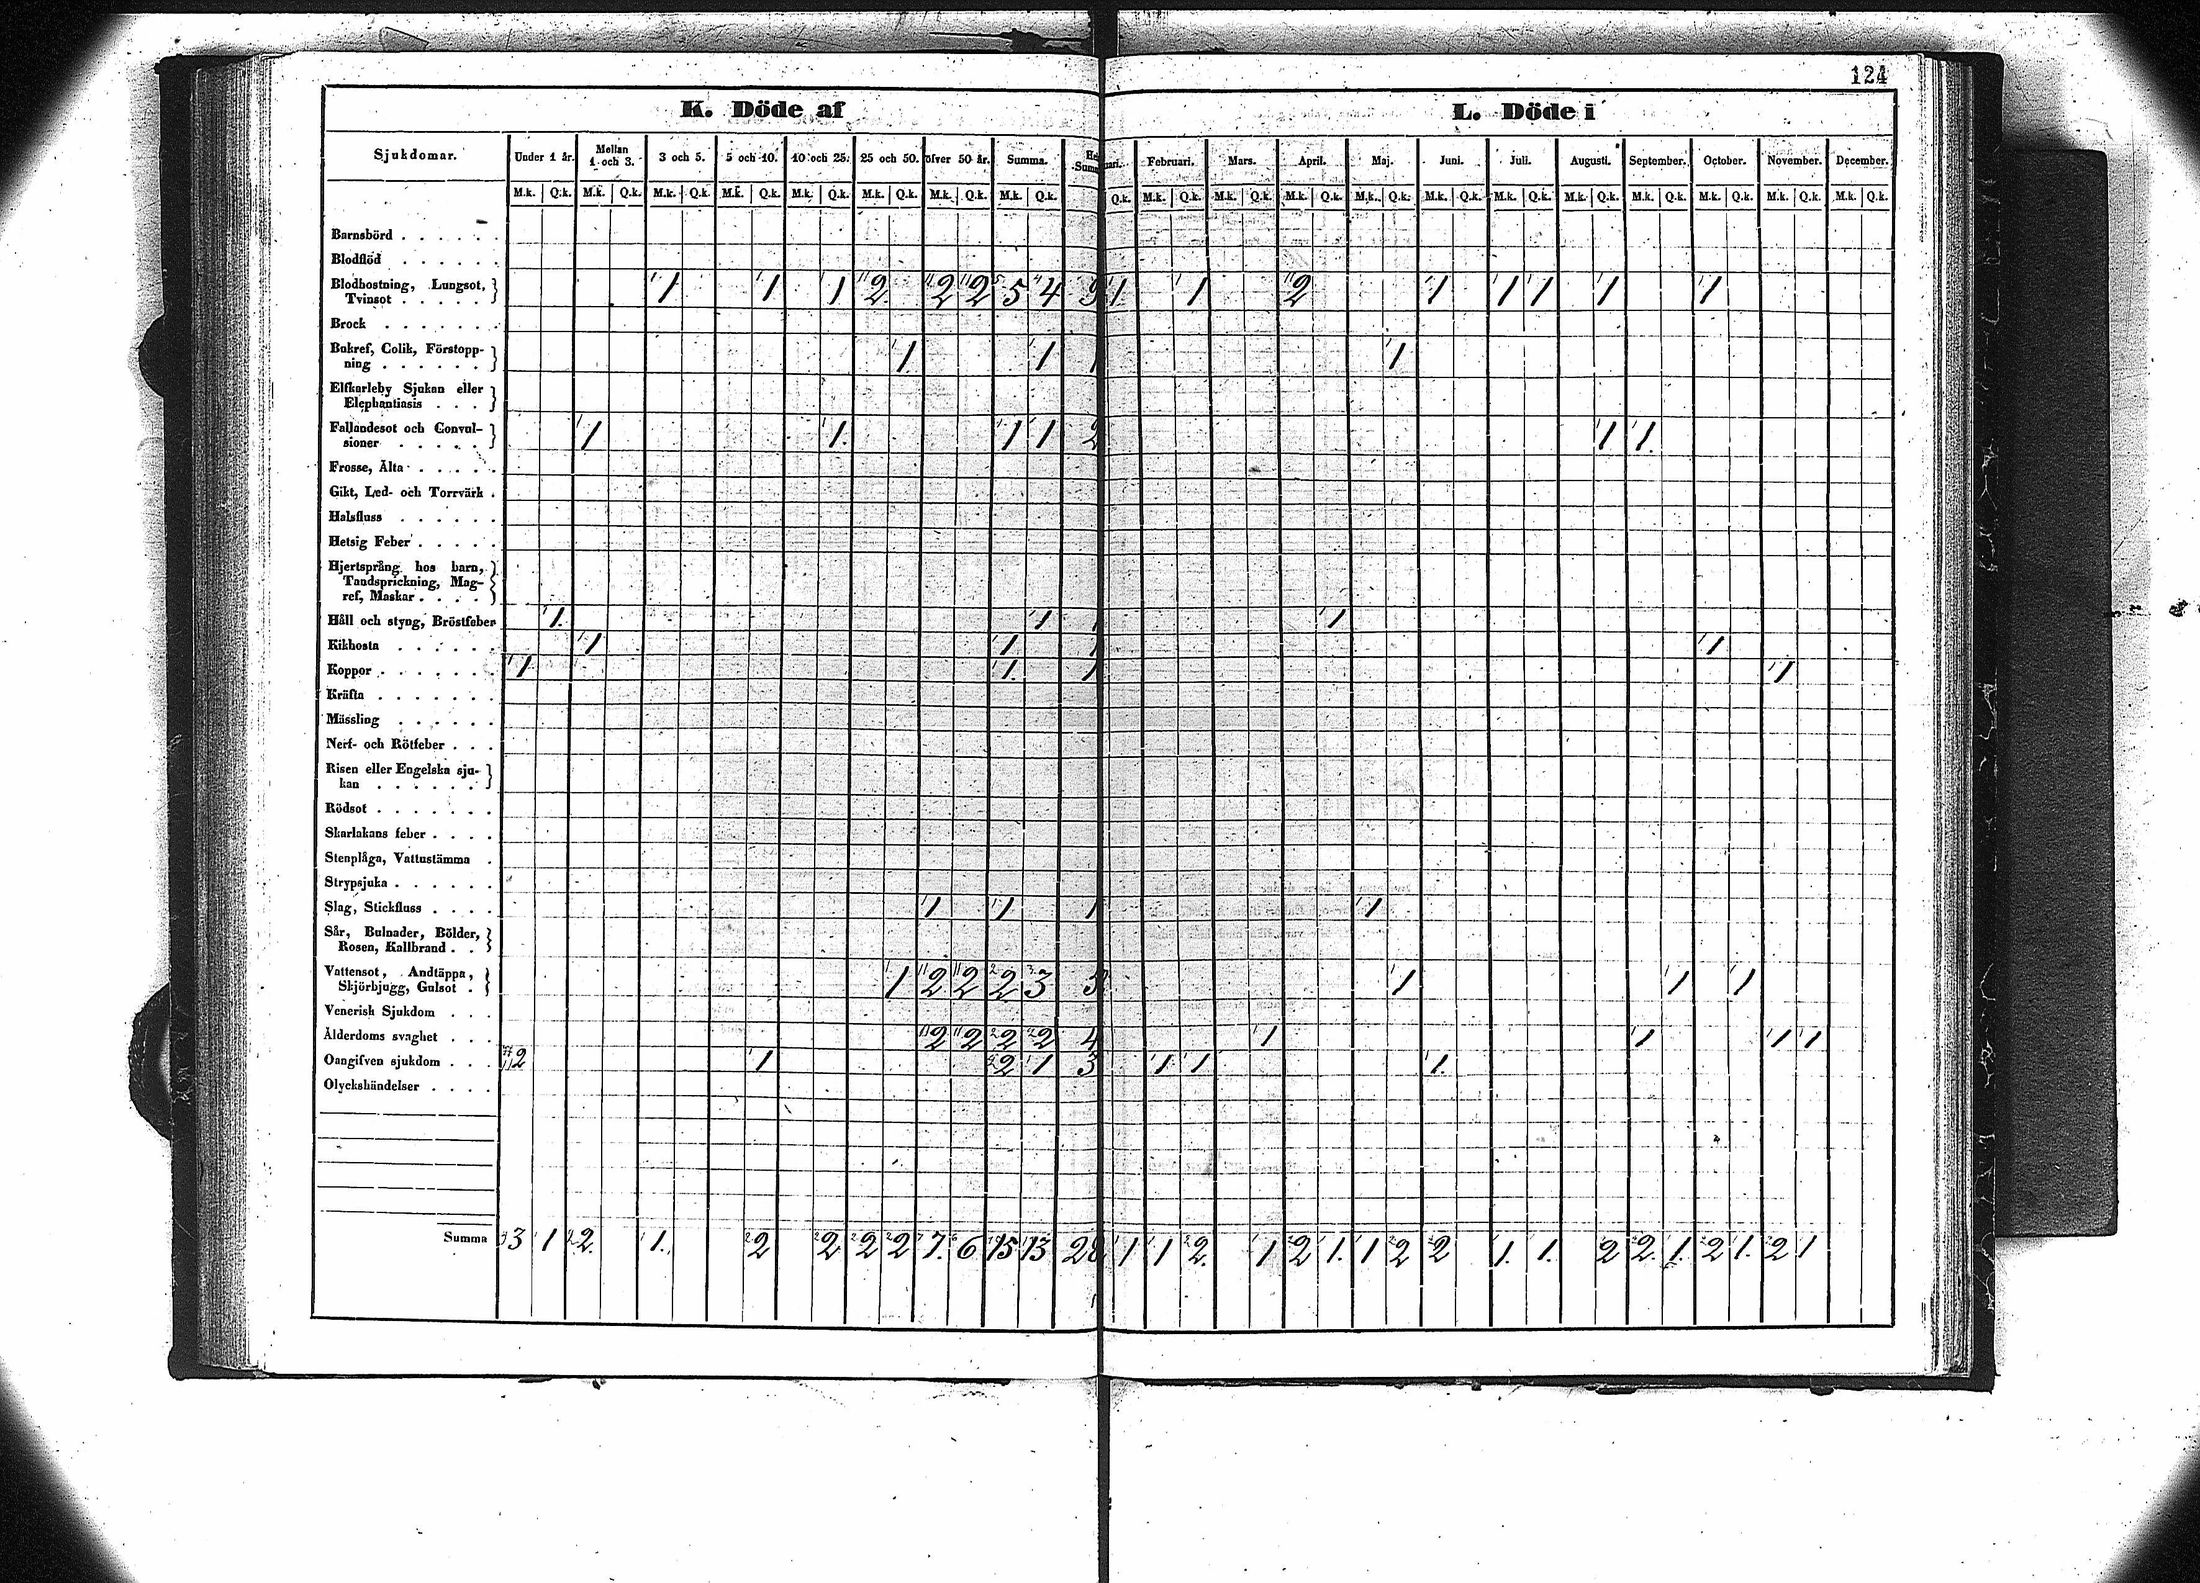 124
K. Döde af L. Döde i
Sjukdomar. Under 1 år. Mellan 1 och 3. 3 och 5. 5 och 10. 10 och 25. 25 och 50. öfver 50 år. Summa. Februari. Mars. April. Maj. Juni. Juli. Augusti. September. October. November. December.
M.k. Q.k. M.k. Q.k. M.k. Q.k. M.k. Q.k. M.k. Q.k. M.k. Q.k. M.k. Q.k. M.k. Q.k. Q.k. M.k. Q.k. M.k. Q.k. M.k. Q.k. M.k. Q.k. M.k. Q.k. M.k. Q.k. M.k. Q.k. M.k. Q.k. M.k. Q.k. M.k. Q.k. M.k. Q.k.
Barnsbörd
Blodflöd
Blodhostning, Lungsot,
Tvinsot 1 1 1 2 2 2 5 4 9 1 1 2 1 1 1 1 1
Brock
Bukref, Colik, Förstopp-
ning 1 1 1 1
Elfkarleby Sjukan eller
Elephantiasis
Fallandesot och Convul-
sioner 1 1 1 1 2 1 1
Frosse, Älta
Gikt, Led- och Torrvärk
Halsfluss
Hetsig Feber
Hjertsprång hos barn,
Tandsprickning, Mag-
ref, Maskar
Håll och styng, Bröstfeber 1 1 1 1
Kikhosta 1 1 1 1
Koppor 1 1 1 1
Kräfta
Mässling
Nerf- och Rötfeber
Risen eller Engelska sju-
kan
Rödsot
Skarlakans feber
Stenplåga, Vattustämma
Strypsjuka
Slag, Stickfluss 1 1 1 1
Sår, Bulnader, Bölder,
Rosen, Kallbrand
Vattensot, Andtäppa,
Skjörbjugg, Gulsot 1 2 2 2 3 5 1 1 1
Venerisk Sjukdom
Ålderdoms svaghet 2 2 2 2 4 1 1 1 1
Oangifven sjukdom 2 1 2 1 3 1 1 1
Olyckshändelser
Summa 3 1 2 1 2 2 2 2 7 6 15 13 28 1 1 2 1 2 1 1 2 2 1 1 2 2 1 2 1 2 1